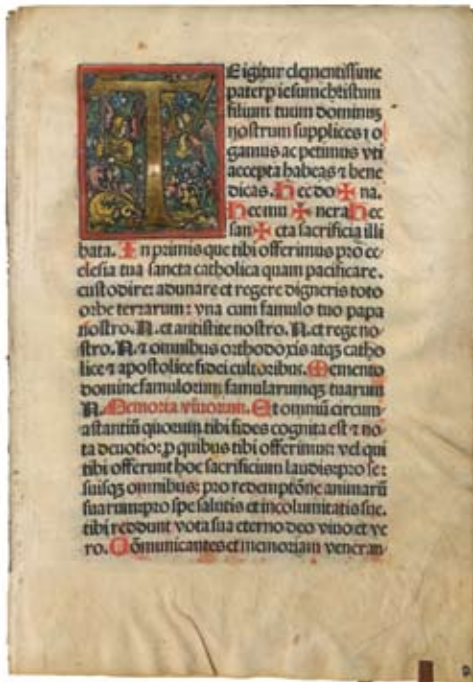 TE igitur clementissime
pater p iesum christum
filium tuum dominum
nostrum supplices ro
gamus ac petimus vti
accepta habeas ⁊ bene
dicas. Hec do ✠ na.
Hec mu ✠ nera Hec
san ✠ cta sacrificia illi
bata. In primis que tibi offerimus pro ec
clesia tua sancta catholica quam pacificare.
custodire: adunare et regere digneris toto
orbe terrarum: vna cum famulo tuo papa
nostro. N. et antistite nostro. N. et rege no-
stro. N. ⁊ omnibus orthodoxis atqʒ catho
lice ⁊ apostolice fidei cultoribus. Memento
domine famulorum famularumqʒ tuarum
N. Memoria viuorum. Et omniū circum
astantiū quorum tibi fides cognita est ⁊ no
ta deuotio: ꝓ quibus tibi offerimus: vel qui
tibi offerunt hoc sacrificium laudis: pro se:
suisqʒ omnibus: pro redemptōne animarū
suarum: pro spe salutis et incolumitatis sue.
tibi reddunt vota sua eterno deo viuo et ve
ro. Cōmunicantes et memoriam veneran-